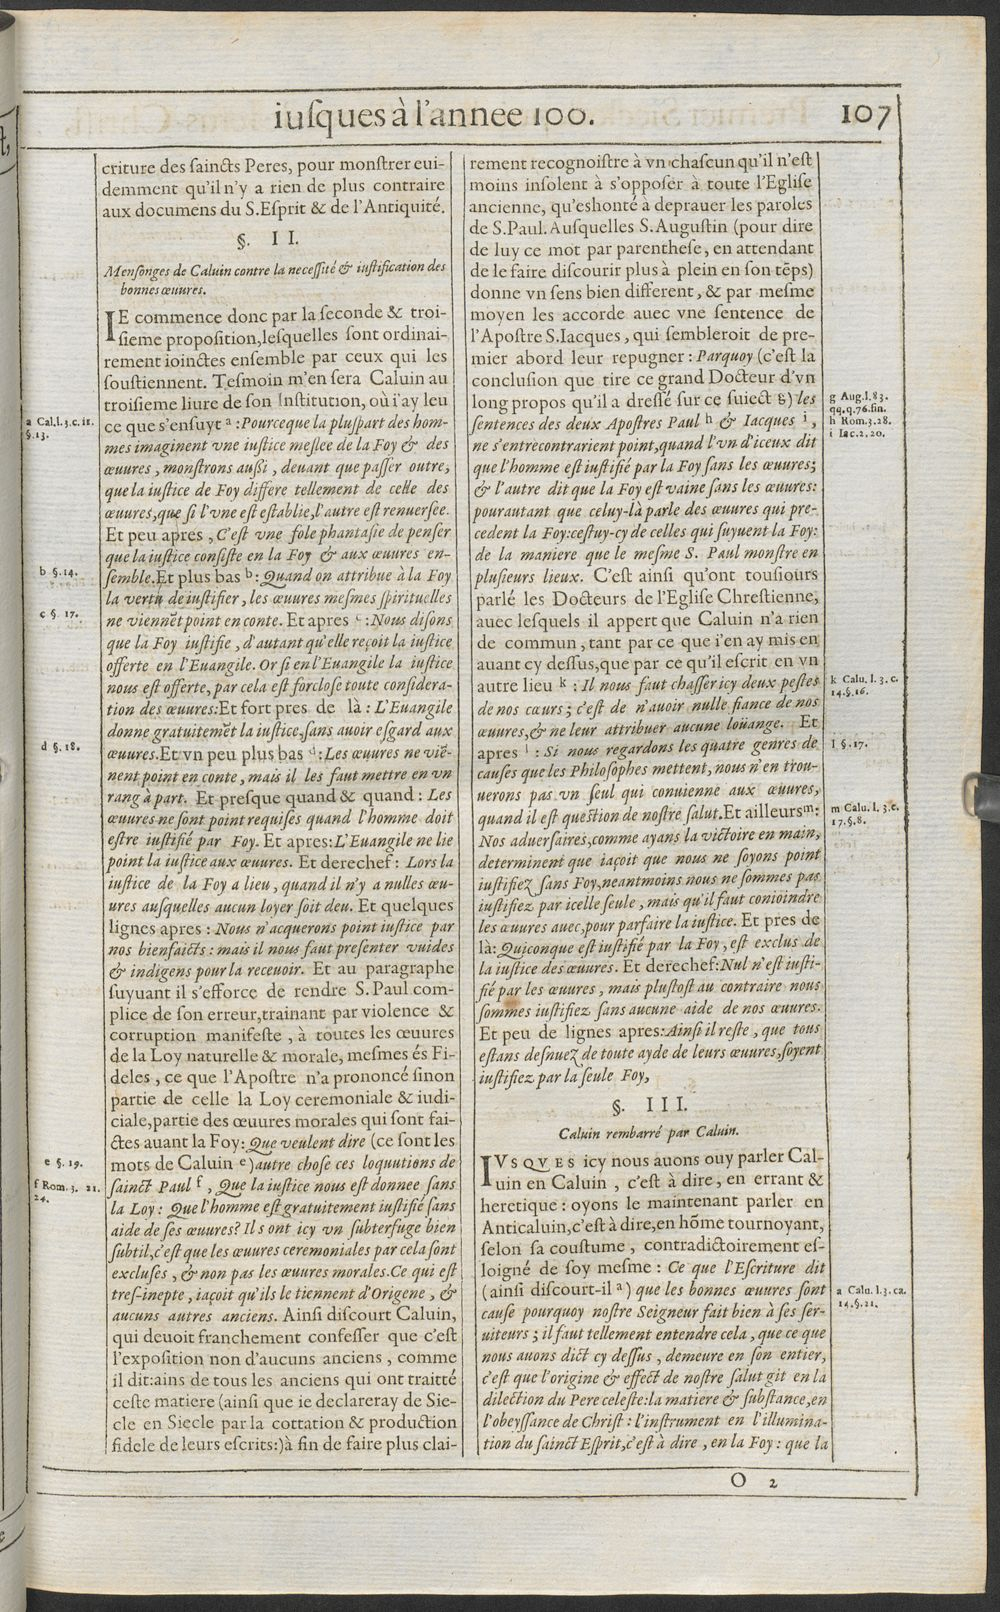 iuſques à l'annee 100.
107
criture des ſaincts Peres, pour monſtrer eui-
demment qu'il n'y a rien de plus contraire
aux documens du S. Eſprit & de l'Antiquité.
§. II.
Menſonges de Caluin contre la neceſſité & iuſtification des
bonnes œuures.
IE commence donc par la ſeconde & troi-
ſieme propoſition, leſquelles ſont ordinai-
rement ioinctes enſemble par ceux qui les
ſouſtiennent. Teſmoin m'en ſera Caluin au
troiſieme liure de ſon Inſtitution, où i'ay leu
ce que s'enſuyt a : Pource que la pluſpart des hom-
mes imaginent vne iuſtice meſlee de la Foy & des
œuures, monſtrons auſſi, deuant que paſſer outre,
que la iuſtice de Foy differe tellement de celle des
œuures, que ſi l'vne eſt eſtablie, l'autre eſt renuerſee.
Et peu apres, C'eſt vne fole phantaſie de penſer
que la iuſtice conſiſte en la Foy & aux œuures en-
ſemble. Et plus bas b : Quand on attribue à la Foy
la vertu de iuſtifier, les œuures meſmes ſpirituelles
ne viennēt point en conte. Et apres c : Nous diſons
que la Foy iuſtifie, d'autant qu'elle reçoit la iuſtice
offerte en l'Euangile. Or ſi en l'Euangile la iuſtice
nous eſt offerte, par cela eſt forcloſe toute conſidera-
tion des œuures: Et fort pres de là : L'Euangile
donne gratuitemēt la iuſtice, ſans auoir eſgard aux
œuures. Et vn peu plus bas d : Les œuures ne viē-
nent point en conte, mais il les faut mettre en vn
rang à part. Et preſque quand & quand : Les
œuures ne ſont point requiſes quand l'homme doit
eſtre iuſtifié par Foy. Et apres: L'Euangile ne lie
point la iuſtice aux œuures. Et derechef : Lors la
iuſtice de la Foy a lieu, quand il n'y a nulles œu-
ures auſquelles aucun loyer ſoit deu. Et quelques
lignes apres : Nous n'acquerons point iuſtice par
nos bienfaicts : mais il nous faut preſenter vuides
& indigens pour la receuoir. Et au paragraphe
ſuyuant il s'efforce de rendre S. Paul com-
plice de ſon erreur, trainant par violence &
corruption manifeſte, à toutes les œuures
de la Loy naturelle & morale, meſmes és Fi-
deles, ce que l'Apoſtre n'a prononcé ſinon
partie de celle la Loy ceremoniale & iudi-
ciale, partie des œuures morales qui ſont fai-
ctes auant la Foy: Que veulent dire (ce ſont les
mots de Caluin e) autre choſe ces loquutions de
ſainct Paul f, Que la iuſtice nous eſt donnee ſans
la Loy : Que l'homme eſt gratuitement iuſtifié ſans
aide de ſes œuures? Ils ont icy vn ſubterfuge bien
ſubtil, c'eſt que les œuures ceremoniales par cela ſont
excluſes, & non pas les œuures morales. Ce qui eſt
treſ-inepte, iaçoit qu'ils le tiennent d'Origene, &
aucuns autres anciens. Ainſi diſcourt Caluin,
qui deuoit franchement confeſſer que c'eſt
l'expoſition non d'aucuns anciens, comme
il dit: ains de tous les anciens qui ont traitté
ceſte matiere (ainſi que ie declareray de Sie-
cle en Siecle par la cottation & production
fidele de leurs eſcrits:) à fin de faire plus clai-
a Cal. l. 3. c. 11.
§. 13.
b §. 14.
c §. 17.
d §. 18.
e §. 19.
f Rom. 3. 21.
24.
rement recognoiſtre à vn chaſcun qu'il n'eſt
moins inſolent à s'oppoſer à toute l'Egliſe
ancienne, qu'eshonté à deprauer les paroles
de S. Paul. Auſquelles S. Auguſtin (pour dire
de luy ce mot par parentheſe, en attendant
de le faire diſcourir plus à plein en ſon tēps)
donne vn ſens bien different, & par meſme
moyen les accorde auec vne ſentence de
l'Apoſtre S. Iacques, qui ſembleroit de pre-
mier abord leur repugner : Parquoy (c'eſt la
concluſion que tire ce grand Docteur d'vn
long propos qu'il a dreſſé ſur ce ſuiect g) les
ſentences des deux Apoſtres Paul h & Iacques i,
ne s'entrecontrarient point, quand l'vn d'iceux dit
que l'homme eſt iuſtifié par la Foy ſans les œuures;
& l'autre dit que la Foy eſt vaine ſans les œuures:
pour autant que celuy-là parle des œuures qui pre-
cedent la Foy: ceſtuy-cy de celles qui ſuyuent la Foy:
de la maniere que le meſme S. Paul monſtre en
pluſieurs lieux. C'eſt ainſi qu'ont touſiours
parlé les Docteurs de l'Egliſe Chreſtienne,
auec leſquels il appert que Caluin n'a rien
de commun, tant par ce que i'en ay mis en
auant cy deſſus, que par ce qu'il eſcrit en vn
autre lieu k : Il nous faut chaſſer icy deux peſtes
de nos cœurs; c'eſt de n'auoir nulle fiance de nos
œuures, & ne leur attribuer aucune loüange. Et
apres l : Si nous regardons les quatre genres de
cauſes que les Philoſophes mettent, nous n'en trou-
uerons pas vn ſeul qui conuienne aux œuures,
quand il eſt queſtion de noſtre ſalut. Et ailleurs m:
Nos aduerſaires, comme ayans la victoire en main,
determinent que iaçoit que nous ne ſoyons point
iuſtifiez ſans Foy, neantmoins nous ne ſommes pas
iuſtifiez par icelle ſeule, mais qu'il faut conioindre
les œuures auec, pour parfaire la iuſtice. Et pres de
là: Quiconque eſt iuſtifié par la Foy, eſt exclus de
la iuſtice des œuures. Et derechef: Nul n'eſt iuſti-
fié par les œuures, mais pluſtoſt au contraire nous
ſommes iuſtifiez ſans aucune aide de nos œuures.
Et peu de lignes apres: Ainſi il reſte, que tous
eſtans deſnuez de toute ayde de leurs œuures, ſoyent
iuſtifiez par la ſeule Foy,
§. III.
Caluin rembarré par Caluin.
IVSQVES icy nous auons ouy parler Cal-
uin en Caluin, c'eſt à dire, en errant &
heretique : oyons le maintenant parler en
Anticaluin, c'eſt à dire, en hōme tournoyant,
ſelon ſa couſtume, contradictoirement eſ-
loigné de ſoy meſme : Ce que l'Eſcriture dit
(ainſi diſcourt-il a) que les bonnes œuures ſont
cauſe pourquoy noſtre Seigneur fait bien à ſes ſer-
uiteurs ; il faut tellement entendre cela, que ce que
nous auons dict cy deſſus, demeure en ſon entier,
c'eſt que l'origine & effect de noſtre ſalut git en la
dilection du Pere celeſte: la matiere & ſubſtance, en
l'obeyſſance de Chriſt : l'inſtrument en l'illumina-
tion du ſainct Eſprit, c'eſt à dire, en la Foy : que la
g Aug. l. 83.
qq. q. 76. fin.
h Rom. 3. 28.
i Iac. 2. 20.
k Calu. l. 3. c.
14. §. 16.
l §. 17.
m Calu. l. 3. c.
17. §. 8.
a Calu. l. 3. ca.
14. §. 21.
O 2